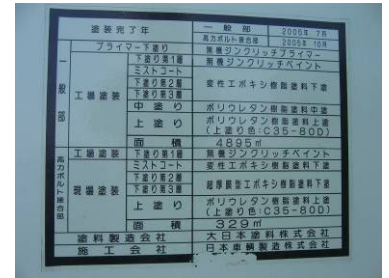 塗装完了年 一般部 2005年 7月
高力ボルト接合部 2005年 10月
一般部 工場塗装 プライマー下塗り 無機ジンクリッチプライマー
下塗り第1層 無機ジンクリッチペイント
ミストコート 変性エポキシ樹脂塗料下塗
下塗り第2層
下塗り第3層
中塗り ポリウレタン樹脂塗料中塗
上塗り ポリウレタン樹脂塗料上塗
(上塗り色:C35-80D)
面積 4895㎡
高力ボルト接合部 工場塗装 下塗り第1層 無機ジンクリッチペイント
現場塗装 ミストコート 変性エポキシ樹脂塗料下塗
下塗り第2層 超厚膜型エポキシ樹脂塗料下塗
下塗り第3層
上塗り ポリウレタン樹脂塗料上塗
(上塗り色:C35-80D)
面積 329㎡
塗料製造会社 大日本塗料株式会社
施工会社 日本車輌製造株式会社